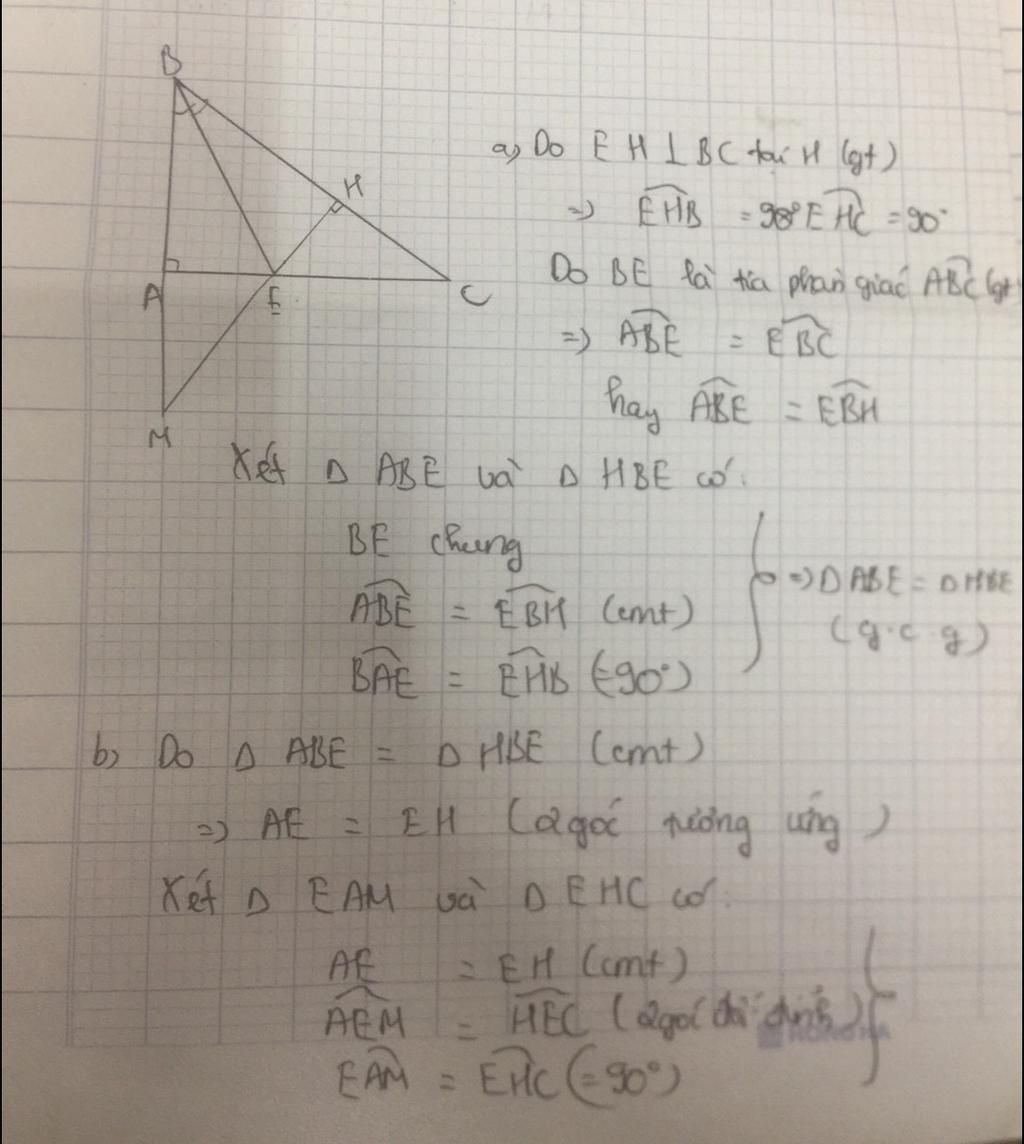 B
H
A
E
C
M
a) Do EH ⊥ BC tại H (gt)
=> EHB = 90° EHC = 90°
Do BE là tia phân giác ABC (gt
=> ABE = EBC
hay ABE = EBH
Xét Δ ABE và Δ HBE có:
BE chung
ABE = EBH (cmt)
BAE = EHB (=90°)
=> Δ ABE = Δ HBE
(g.c.g)
b) Do Δ ABE = Δ HBE (cmt)
=> AE = EH (2 góc tương ứng)
Xét Δ EAM và Δ EHC có:
AE = EH (cmt)
AEM = HEC (2 góc đối đỉnh)
EAM = EHC (=90°)